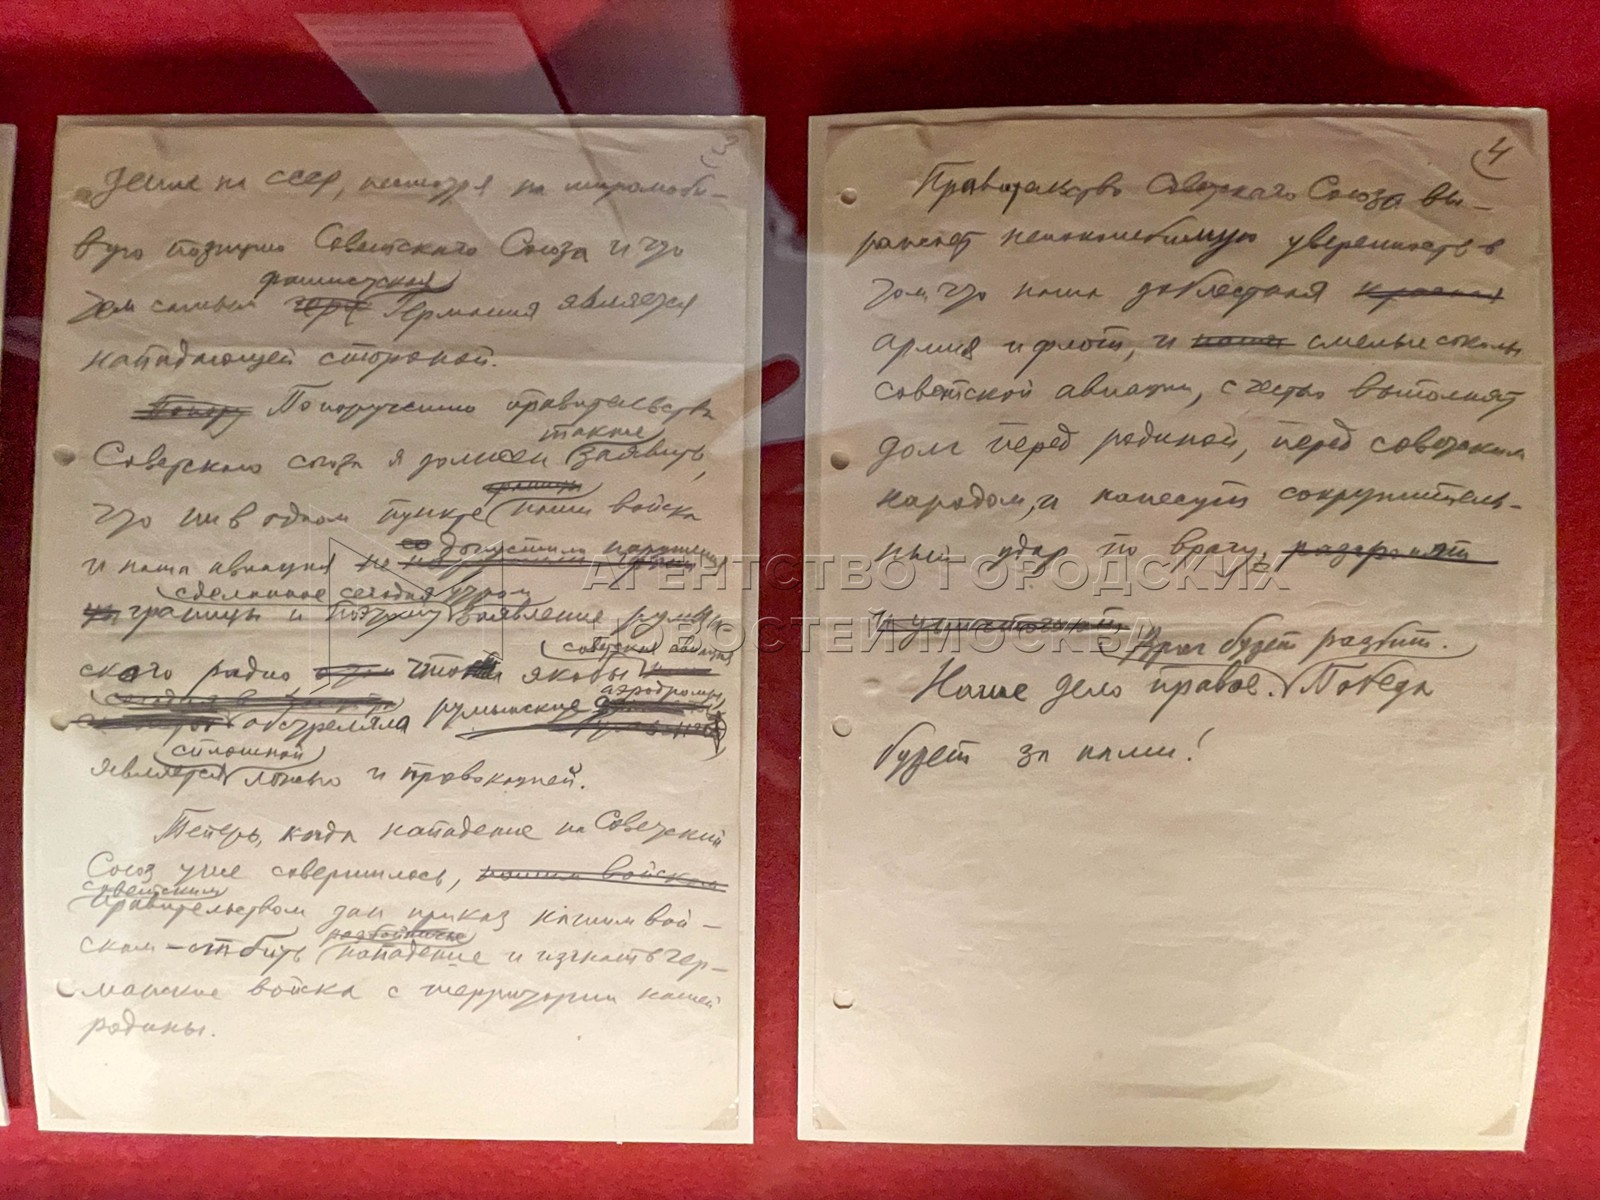 3
дение на СССР, несмотря на миролюби-
вую позицию Советского Союза и что
фашистская
тем самым Германия является
нападающей стороной.
По поручению правительства
также
Советского союза я должен заявить,
что ни в одном пункте наши войска
допустили нарушения
и наша авиация не
сделанное сегодня утром
границы и поэтому заявление румын-
советская авиация
ского радио, что якобы
аэродромы
обстреляла румынские
сплошной
является ложью и провокацией.
Теперь, когда нападение на Советский
Союз уже совершилось, нашим войскам
советским
правительством дан приказ нашим вой-
разбойничье
скам - отбить нападение и изгнать гер-
манские войска с территории нашей
родины.
4
Правительство Советского Союза вы-
ражает непоколебимую уверенность в
том, что наша доблестная красная
армия и флот, и наши смелые соколы
советской авиации, с честью выполнят
долг перед родиной, перед советским
народом, и нанесут сокрушитель-
ный удар по врагу,
и уничтожат
Враг будет разбит.
Наше дело правое. Победа
будет за нами!
АГЕНТСТВО ГОРОДСКИХ
НОВОСТЕЙ МОСКВА